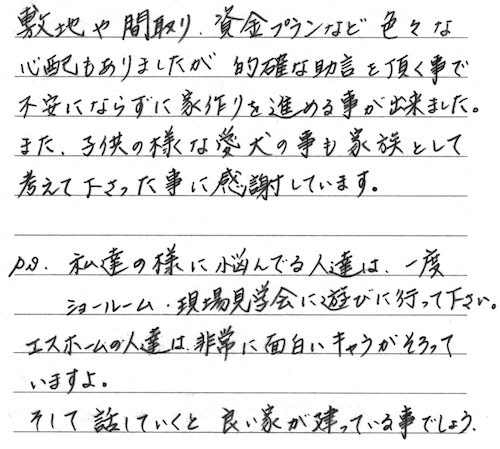 敷地や間取り、資金プランなど色々な
心配もありましたが 的確な助言を頂く事で
不安にならずに家作りを進める事が出来ました。
また、子供の様な愛犬の事も家族として
考えて下さった事に感謝しています。
p.s. 私達の様に悩んでる人達は、一度
ショールーム・現場見学会に遊びに行って下さい。
エスホームの人達は、非常に面白いキャラがそろって
いますよ。
そして話していくと 良い家が建っている事でしょう。